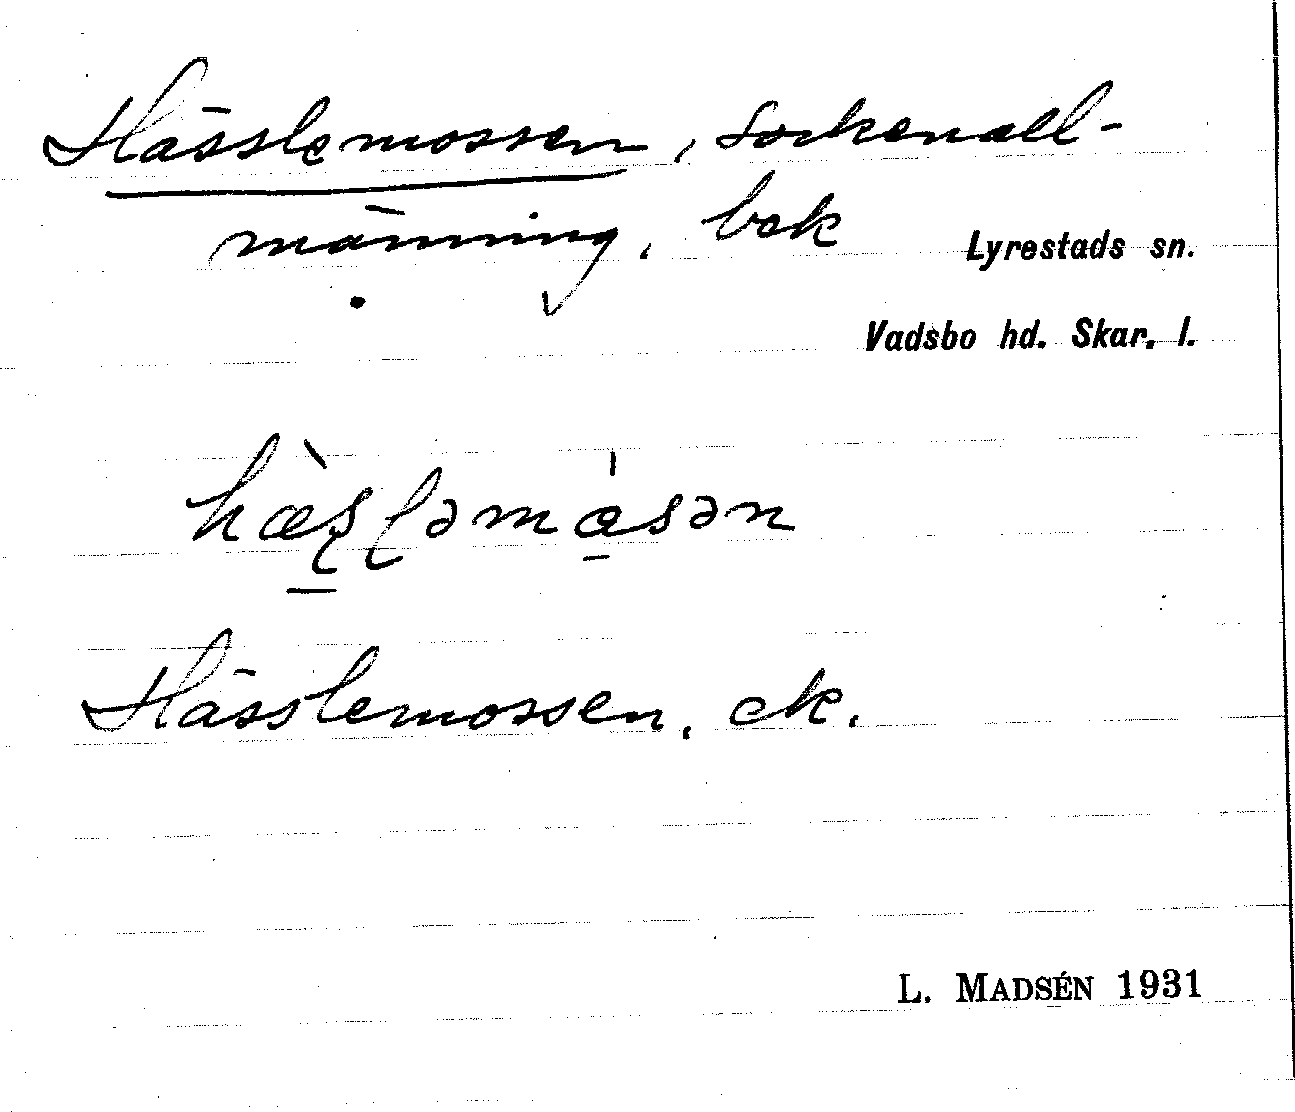 Hässlemossen, sockenall-
männing, bek
Lyrestads sn.
Vadsbo hd. Skar. l.
hæ̀sləmåsən
Hässlemossen, ek.
L. MADSÉN 1931